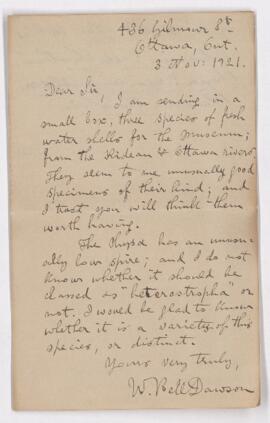 436 Gilmour St
Ottawa, Ont.
3 Nov: 1921.
Dear Sir,
I am sending in a
small box, three species of fresh
water shells for the Museum;
from the Rideau & Ottawa rivers.
They seem to me unusually good
specimens of their kind; and
I trust you will think them
worth having.
The Physa has an unusu-
ally low spire; and I do not
know whether it should be
classed as "heterostropha" or
not. I would be glad to know
whether it is a variety of this
species, or distinct.
Yours very truly,
W. Bell Dawson